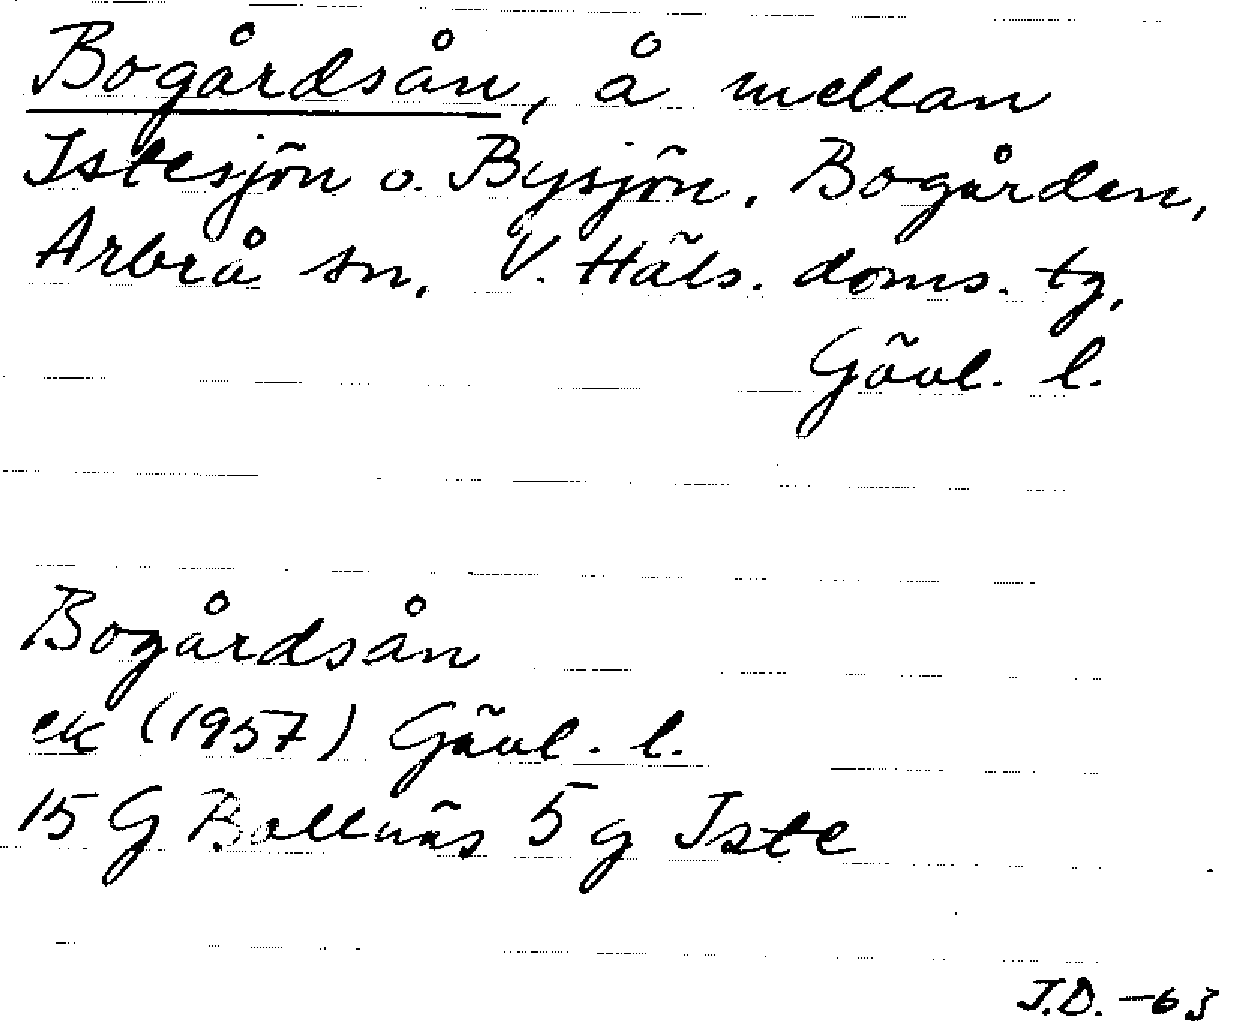 Bogårdsån, å mellan
Istesjön o. Bysjön, Bogården,
Arbrå sn, V. Häls. doms. tg,
Gävl. l.
Bogårdsån
ek (1957) Gävl. l.
15 G Bollnäs 5 g Iste
J.D. -63